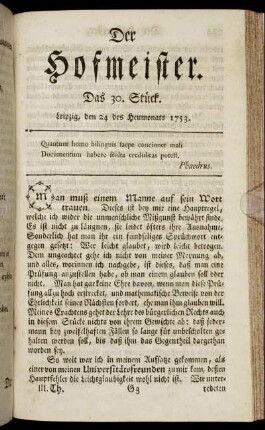 Der
Hofmeister.
Das 30. Stück.
Leipzig, den 24 des Heumonats 1753.
Quantum homo bilinguis saepe concinnet mali
Documentum habere stulta credulitas potest.
Phaedrus.
Man muß einem Manne auf sein Wort
trauen. Dieses ist bey mir eine Hauptregel,
welche ich wider die unmenschliche Mißgunst bewährt finde.
Es ist nicht zu läugnen, sie leidet öfters ihre Ausnahme.
Sonderlich hat man ihr ein feindseliges Sprüchwort ent-
gegen gesetzt: Wer leicht glaubet, wird leicht betrogen.
Dem ungeachtet gehe ich nicht von meiner Meynung ab,
und alles, worinnen ich nachgebe, ist dieses, daß man eine
Prüfung anzustellen habe, ob man einem glauben soll oder
nicht. Man hat gar keine Ehre davon, wenn man diese Prü-
fung allzu hoch erstrecket, und mathematische Beweise von der
Ehrlichkeit seines Nächsten fordert, ehe man ihm glauben will.
Meines Erachtens gehet der Lehre des bürgerlichen Rechts auch
in diesem Stücke nichts von ihrem Gewichte ab: daß jeder-
mann bey zweifelhaften Fällen so lange für unbescholten ge-
halten werden soll, bis daß ihm das Gegentheil dargethan
worden sey.
So weit war ich in meinem Aufsatze gekommen, als
einer von meinen Universitätsfreunden zu mir kam, dessen
Hauptfehler die Leichtgläubigkeit wohl nicht ist. Wir unter-
III. Th. Gg redeten